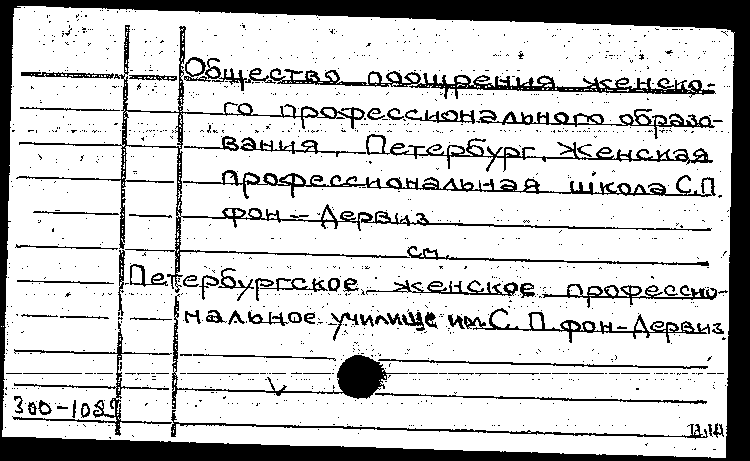 Общество поощрения женско-
го профессионального образо-
вания, Петербург. Женская
профессиональная школа С.П.
фон-Дервиз
см.
Петербургское женское профессио-
нальное училище им. С. П. фон-Дервиз.